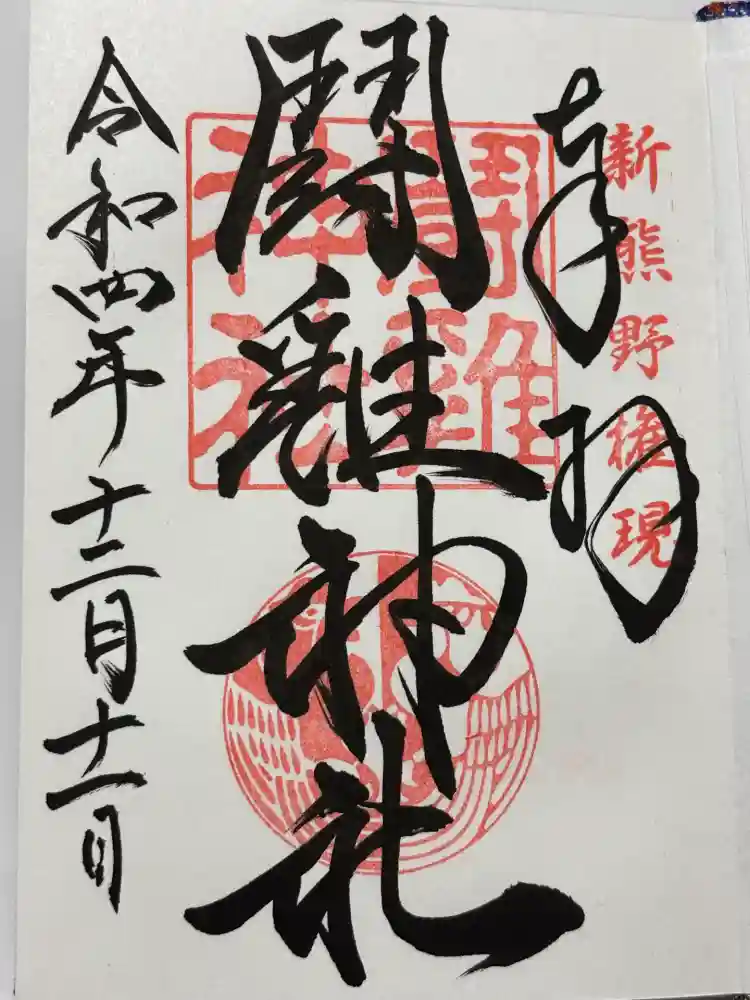 新熊野権現
奉拝
闘雞神社
闘雞
神社
令和四年十二月十一日